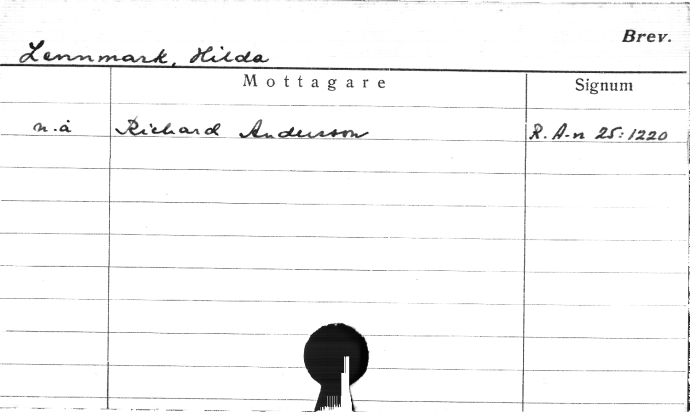 Brev.
Lennmark, Hilda
Mottagare Signum
n.å Richard Andersson R. A-n 25:1220